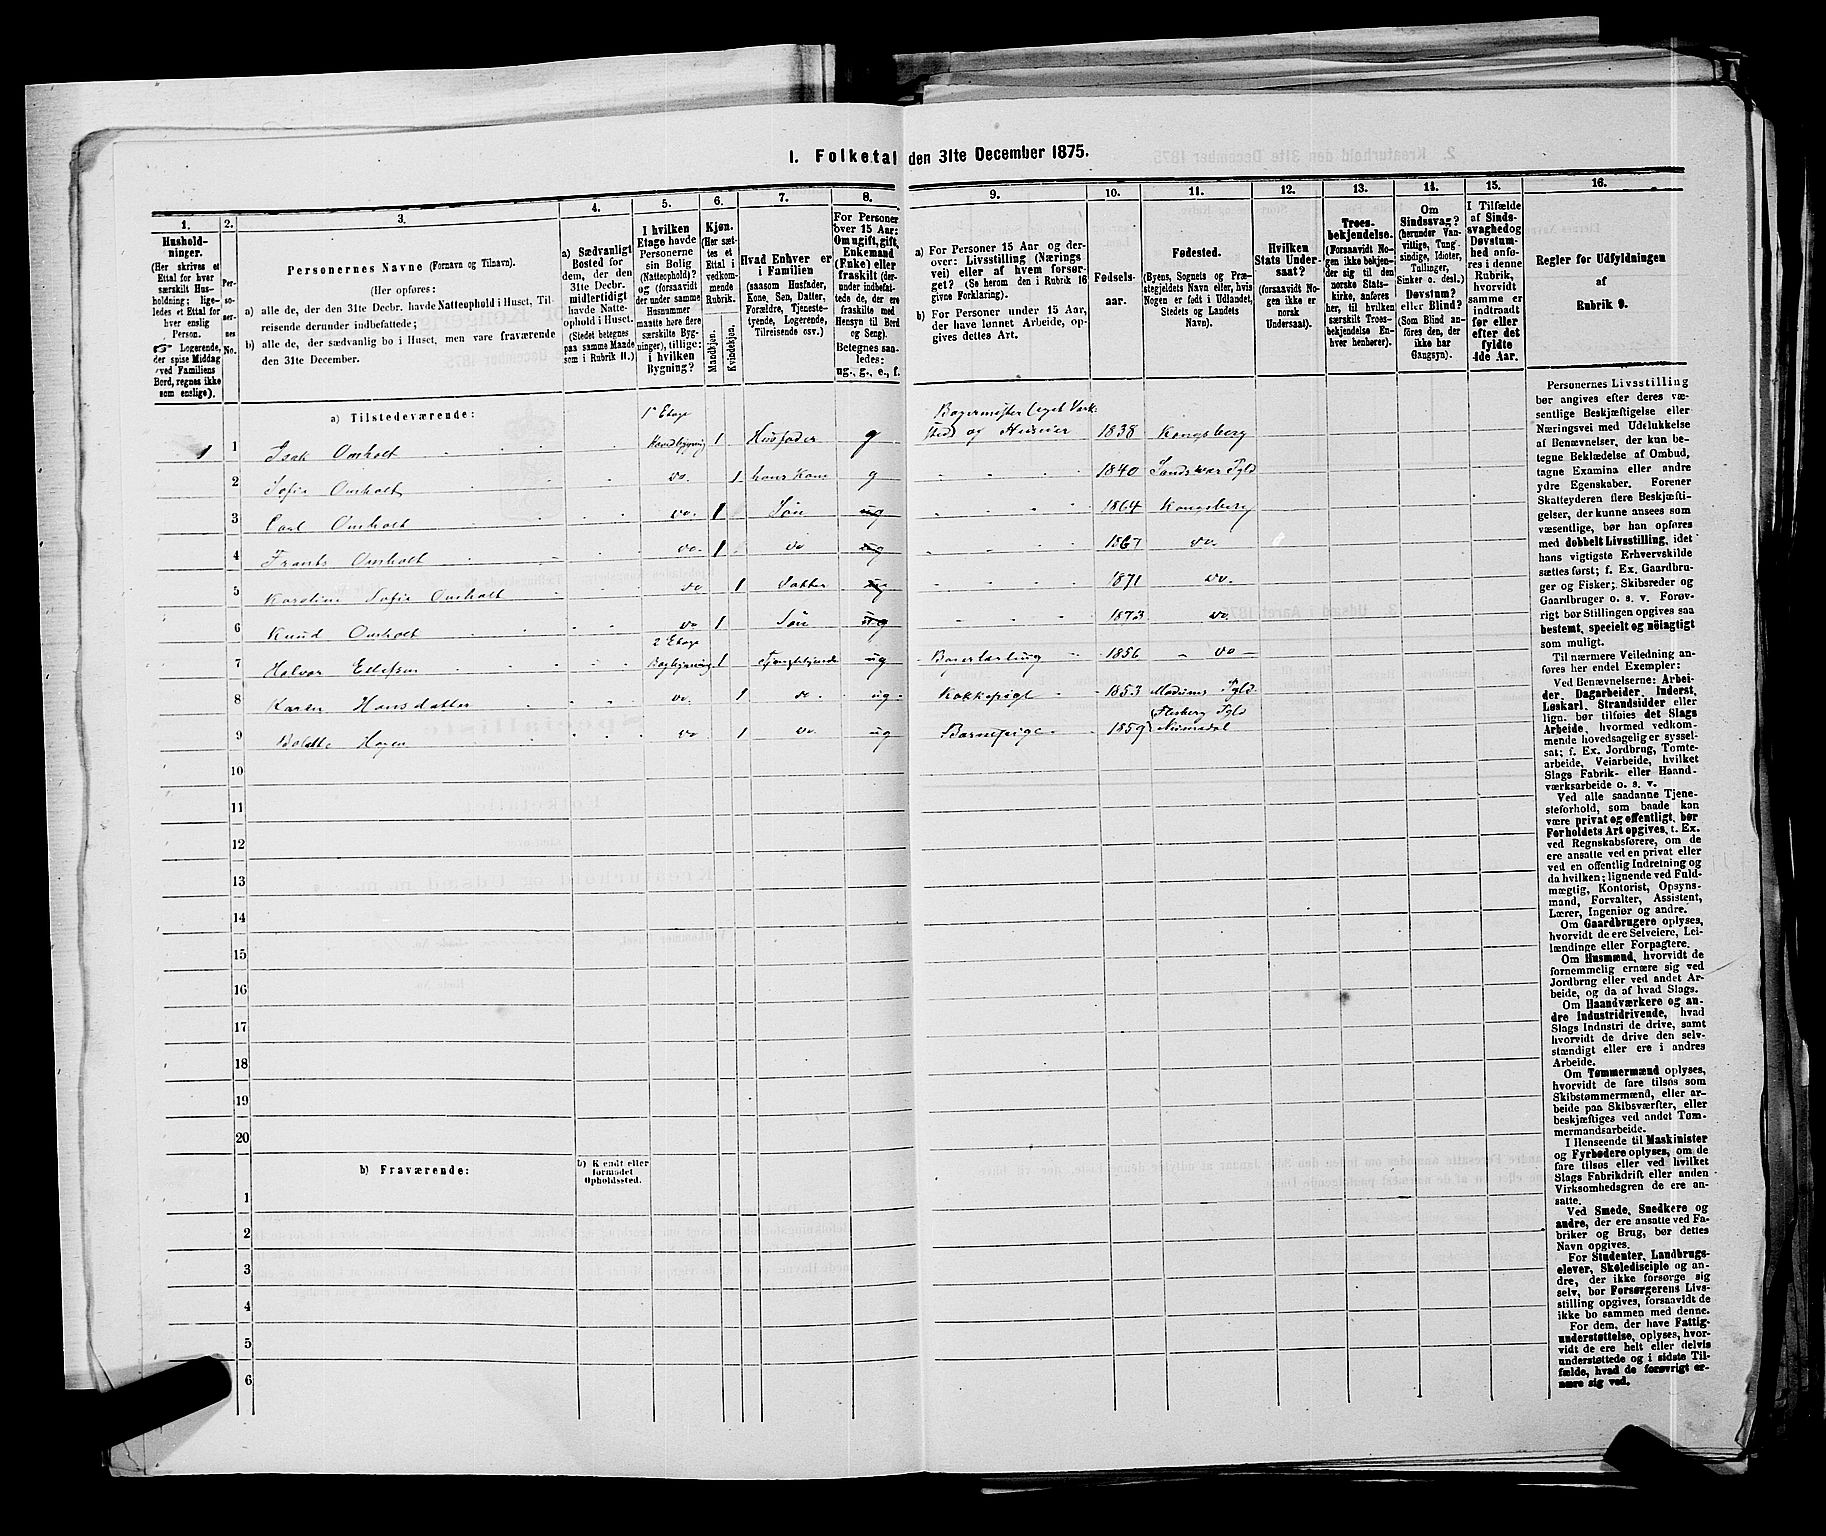 1. Folketal den 31te December 1875.
1. 2. 3. 4. 5. 6. 7. 8. 9. 10. 11. 12. 13. 14. 15. 16.
Hushold-
ninger.
(Her skrives et
Ettal for hver
særskilt Hus-
holdning; lige-
ledes et Ettal for
hver enslig
Person.
Logerende,
der spise Middag
ved Familiens
Bord, regnes ikke
som enslige).
Per-
so-
ner-
nes
No.
Personernes Navne (Fornavn og Tilnavn).
(Her opføres:
a) alle de, der den 31te Decbr. havde Natteophold i Huset, Til-
reisende derunder indbefattede;
b) alle de, der sædvanlig bo i Huset, men vare fraværende
den 31te December.
a) Sædvanligt
Bosted for
dem, der den
31te Decbr.
midlertidigt
havde Natte-
ophold i Huset.
(Stedet betegnes
paa samme Maade
som i Rubrik 11.)
I hvilken
Etage havde
Personerne
sin Bolig
(Natteophold)?
og (forsaavidt
der under samme
Husnummer
maatte høre flere
særskilte Byg-
ninger), tillige:
i hvilken
Bygning?
Kjøn.
(Her sæt-
tes et
Ettal i
vedkom-
mende
Rubrik.
Mandkjøn.
Kvindekjøn.
Hvad Enhver er
i Familien
(saasom Husfader,
Kone, Søn, Datter,
Forældre, Tjeneste-
tyende, Logerende,
Tilreisende osv.)
For Personer
over 15 Aar:
Om ugift, gift,
Enkemand
(Enke) eller
fraskilt (der-
under indbefat-
tede de, der ere
fraskilte med
Hensyn til Bord
og Seng).
Betegnes saa-
ledes:
ug., g., e., f.
a) For Personer 15 Aar og der-
over: Livsstilling (Nærings
vei) eller af hvem forsør-
get? (Se herom den i Rubrik 16
givne Forklaring).
b) For Personer under 15 Aar,
der have lønnet Arbeide, op-
gives dettes Art.
Fødsels-
aar.
Fødested.
(Byens, Sognets og Præ-
stegjeldets Navn eller, hvis
Nogen er født i Udlandet,
Stedets og Landets
Navn).
Hvilken
Stats Under-
saat?
(forsaavidt No-
gen ikke er
norsk
Undersaat).
Troes-
bekjendelse.
(Forsaavidt No-
gen ikke bekjen-
der sig til den
norske Stats-
kirke, anføres
her, til hvilken
særskilt Troes-
bekjendelse En-
hver henhører).
Om
Sindssvag?
(herunder Van-
vittige, Tung-
sindige, Idioter,
Tullinger,
Sinker o. desl.)
Døvstum?
eller Blind?
(Som Blind an-
føres den, der
ikke har
Gangsyn).
I Tilfælde
af Sinds-
svaghed og
Døvstum-
hed anfø-
res i denne
Rubrik,
hvorvidt
samme er
indtraadt
før eller
efter det
fyldte
4de Aar.
Regler for Udfyldningen
af
Rubrik 9.
a) Tilstedeværende:
1 1 Isak Omholt 1e Etage 1 Husfader g Bagermester eget Værk-
sted og Huseier 1838 Kongsberg
2 Sofie Omholt do. 1 hans Kone g 1840 Sandsvær Pgld
3 Carl Omholt do. 1 Søn ug 1864 Kongsberg
4 Frants Omholt do. 1 do ug 1867 do.
5 Karoline Sofie Omholt do 1 Datter ug 1871 do.
6 Knud Omholt do 1 Søn ug 1873 do.
7 Halvor 2 Etage
Bagbygning 1 ug 1856 do
8 Karen Hansdatter do. 1 do. ug. Kokkepige 1853 Modums Pgld
9 Bolette do 1 do. ug Barnepige 1859 Flesberg Pgld
Numedal
10
11
12
13
14
15
16
17
18
19
20
b) Fraværende:
b) Kjendt eller
formodet
Opholdssted.
1
2
3
4
5
6
Personernes Livsstilling
bør angives efter deres væ-
sentlige Beskjæftigelse eller
Næringsvei med Udelukkelse
af Benævnelser, der kun be-
tegne Beklædelse af Ombud,
tagne Examina eller andre
ydre Egenskaber. Forener
Skatteyderen flere Beskjæfti-
gelser, der kunne ansees som
væsentlige, bør han opføres
med dobbelt Livsstilling, idet
hans vigtigste Erhvervskilde
sættes først; f. Ex. Gaardbru-
ger og Fisker; Skibsreder og
Gaardbruger o. s. v. Forøv-
rigt bør Stillingen opgives saa
bestemt, specielt og nöiagtigt
som muligt.
Til nærmere Veiledning an-
føres her endel Exempler:
Ved Benævnelserne: Arbei-
der, Dagarbeider, Inderst,
Løskarl, Strandsidder eller
lign. bør tilføies det Slags
Arbeide, hvormed vedkom-
mende hovedsageliger syssel-
sat; f. Ex. Jordbrug, Tomte-
arbeide, Veiarbeide, hvilket
Slags Fabrik- eller Haand-
værksarbeide o. s. v.
Ved alle saadanne Tjene-
steforhold, som baade kan
være privat og offentligt, bør
Forholdets Art opgives, t. Ex.
ved Regnskabsførere, om de
ere ansatte ved en privat eller
ved en offentlig Indretning og
da hvilken; lignende ved Fuld-
mægtig, Kontorist, Opsyns-
mand, Forvalter, Assistent,
Lærer, Ingeniør og andre.
Om Gaardbrugere oplyses,
hvorvidt de ere Selveiere, Lei-
lændinge eller Forpagtere.
Om Husmænd, hvorvidt de
fornemmelig ernære sig ved
Jordbrug eller ved andet Ar-
beide, og da af hvad Slags.
Om Haandværkere og an-
dre Industridrivende, hvad
Slags Industri de drive, samt
hvorvidt de drive den selv-
stændigt eller ere i andres
Arbeide.
Om Tømmermænd oplyses,
hvorvidt de fare tilsøs som
Skibstømmermænd, eller ar-
beide paa Skibsværfter, eller
beskjæftiges ved andet Tøm-
mermandsarbeide.
I Henseende til Maskinister
og Fyrbødere oplyses, om de
fare tilsøs eller ved hvilket
Slags Fabrikdrift eller anden
Virksomhedsgren de ere an-
satte.
Ved Smede, Snedkere og
andre, der ere ansatte ved Fa-
briker og Brug, bør dettes
Navn opgives.
For Studenter, Landbrugs-
elever, Skoledisciple og an-
dre, der ikke forsørge sig
selv, bør Forsørgerens Livs-
stilling opgives, forsaavidt de
ikke bo sammen med denne.
For dem, der have Fattig-
understøttelse, oplyses, hvor-
vidt de ere helt eller delvis
understøttede og i sidste Til-
fælde, hvad de forøvrigt er-
nære sig ved.